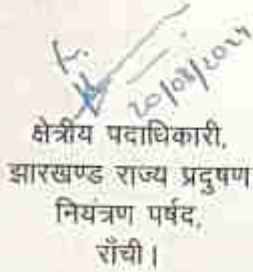 20/08/2024
क्षेत्रीय पदाधिकारी,
झारखण्ड राज्य प्रदुषण
नियंत्रण पर्षद,
राँची।